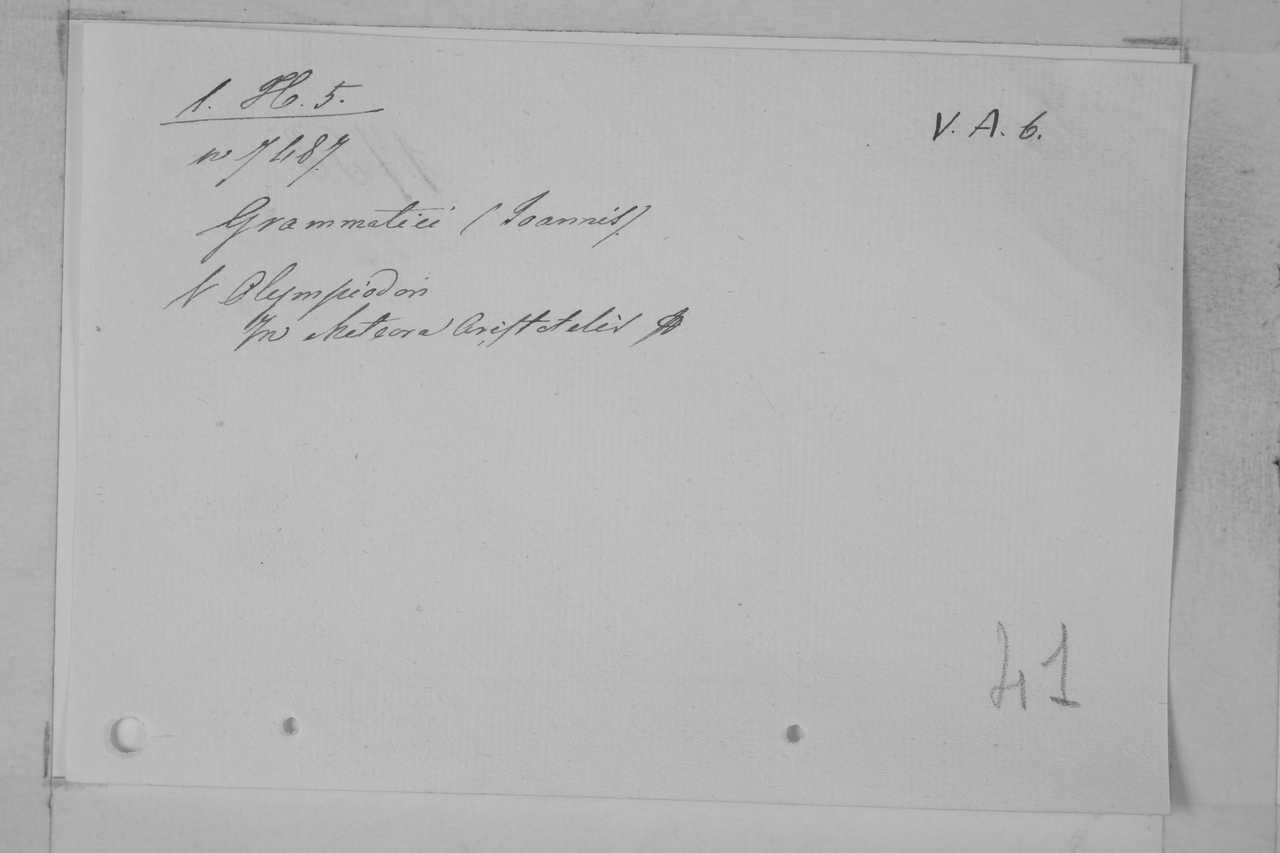 1. H. 5.
V. A. 6.
n 7487
Grammatici (Joannis)
V Olympiodori
In Meteora Aristotelis
41